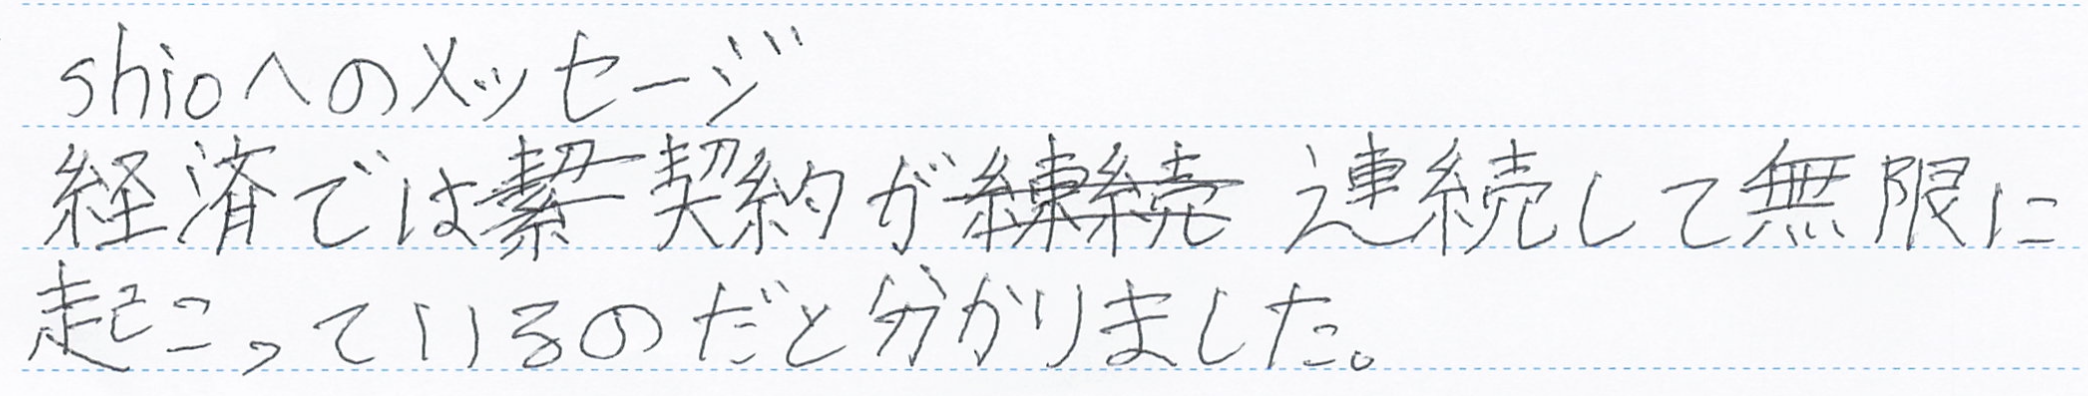 shioへのメッセージ
経済では契約が連続して無限に
起こっているのだと分かりました。